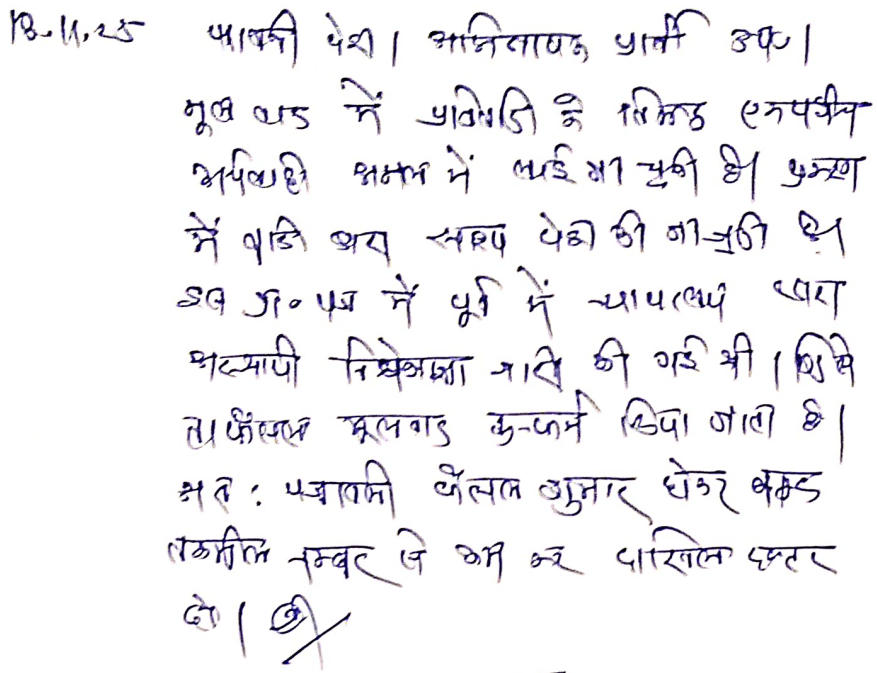 13.11.25 पत्रावली पेश। अभिभाषक प्रार्थी उप०।
मूल वाद में प्रतिवादी के विरुद्ध एकपक्षीय
कार्यवाही अमल में लाई जा चुकी है। प्रकरण
में वादी द्वारा साक्ष्य पेश की जा चुकी है।
इस प्रा० पत्र में पूर्व में न्यायालय द्वारा
अस्थायी निषेधाज्ञा जारी की गई थी। जिसे
ता फैसला मूलवाद कन्फर्म किया जाता है।
अतः पत्रावली फैसल शुमार होकर बाद
तकमील नम्बर से कम कर दाखिल दफ्तर
हो।